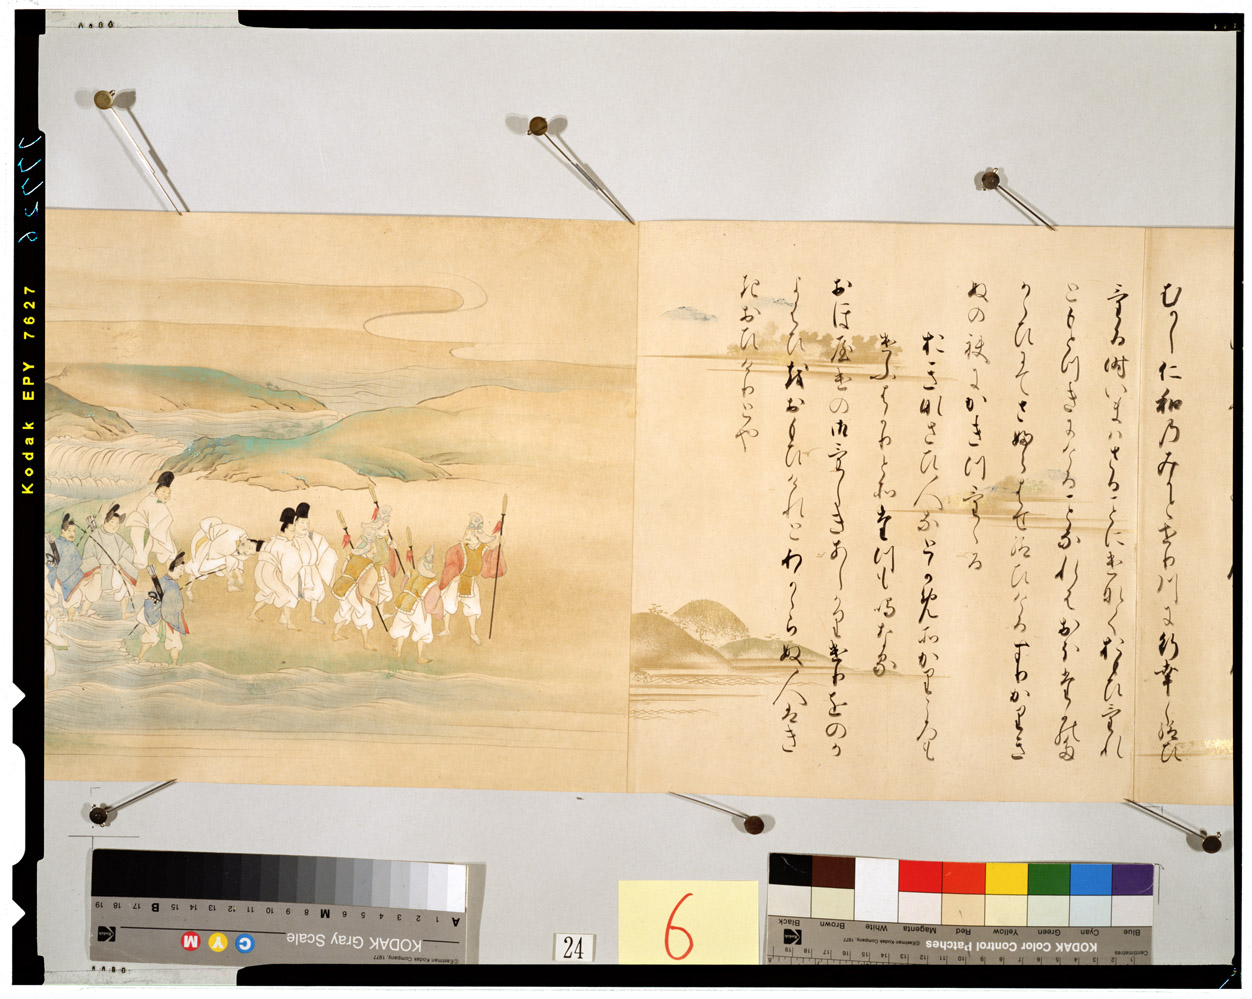 むかし仁和のみかとせり川に行幸し給ひ
ける時いまはさることにけなくおもひけれ
ともとつきにけることなれはおほたかのた
かひにてさふらはせ給ひけるすりかりき
ぬの袂にかきつけける
おきなさひ人なとかめそかりころも
けふはかりとそたつも鳴なる
おほやけの御けしきあしかりけりをのか
よはひをおもひけれとわかゝらぬ人はき
きおひけりとや
Kodak EPY 7627
6
24
KODAK Gray Scale
©Eastman Kodak Company, 1977
C Y M
A 1 2 3 4 5 6 M 8 9 10 11 12 13 14 15 B 17 18 19
Kodak
KODAK Color Control Patches
©Eastman Kodak Company, 1977
Blue Cyan Green Yellow Red Magenta White Brown Black
Centimetres
1 2 3 4 5 6 7 8 9 10 11 12 13 14 15 16 17 18 19
Kodak